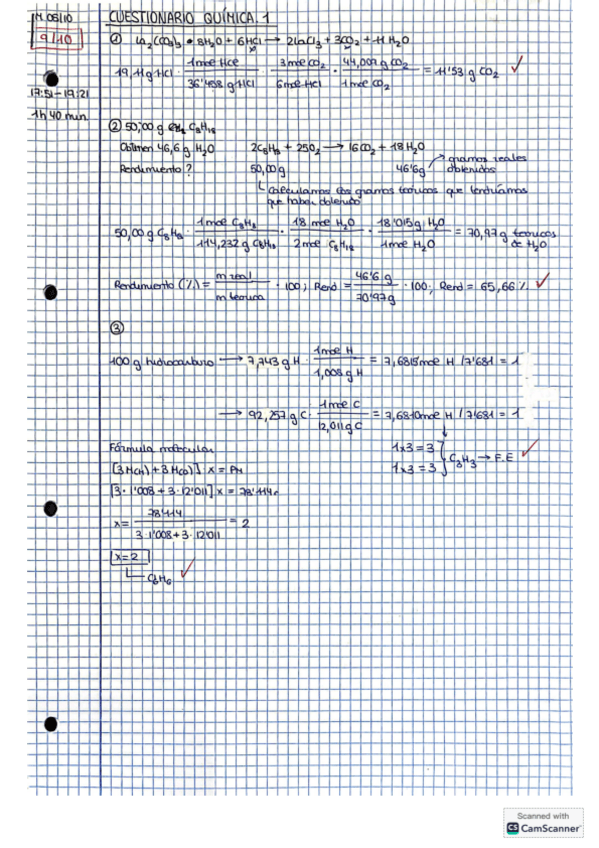 M 08/10
9/10
17:51-19:21
1h 40 min
CUESTIONARIO QUÍMICA.1
① La₂(CO₃)₃ • 8H₂O + 6HCl → 2LaCl₃ + 3CO₂ + 11 H₂O
19,11g HCl · 1mol HCl / 36'458 g HCl · 3mol CO₂ / 6mol HCl · 44,009 g CO₂ / 1mol CO₂ = 11'53 g CO₂ ✓
② 50,00 g C₈H₁₈
Obtienen 46,6 g H₂O 2C₈H₁₈ + 25O₂ → 16CO₂ + 18H₂O
Rendimiento? 50,00g 46'6g → gramos reales obtenidos
↳ Calculamos los gramos teóricos que tendríamos que haber obtenido
50,00 g C₈H₁₈ · 1mol C₈H₁₈ / 114,232 g C₈H₁₈ · 18 mol H₂O / 2mol C₈H₁₈ · 18'015g H₂O / 1mol H₂O = 70,97g teóricos de H₂O
Rendimiento (%) = m real / m teórica · 100; Rend = 46'6 g / 70'97g · 100; Rend = 65,66 % ✓
③
100 g hidrocarburo → 7,743 g H · 1mol H / 1,008 g H = 7,6815mol H / 7'681 = 1
→ 92,257 g C · 1mol C / 12,011g C = 7,6810mol C / 7'681 = 1
Fórmula molecular
1x3 = 3
1x3 = 3 } C₃H₃ → F.E ✓
[3 M(H) + 3M(C)] x = PM
[3 · 1'008 + 3 · 12'011] x = 78'114
x = 78'114 / 3·1'008 + 3·12'011 = 2
x = 2
↳ C₆H₆ ✓
Scanned with
CS CamScanner